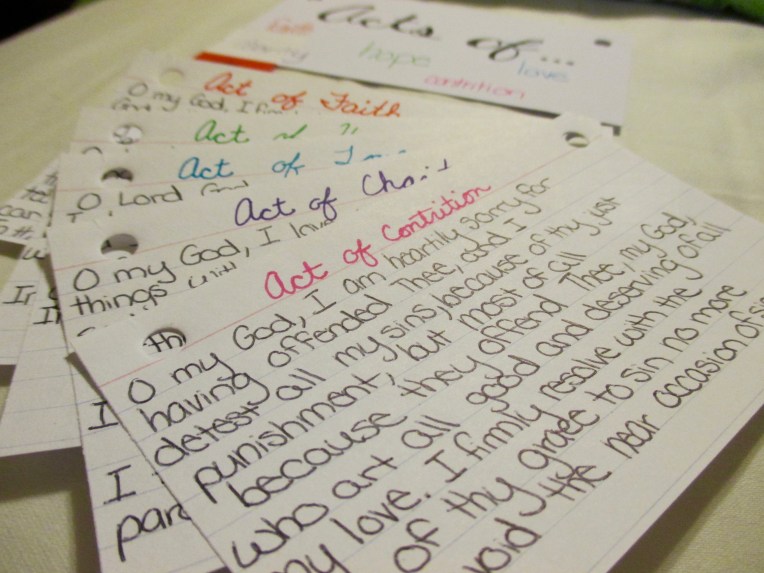 Acts of...
Faith
hope
love
contrition
Act of Faith
O my God, I firm
Act
Act of
O, Lord God
Act of Cha
O my God, I
things
Act of Contrition
th
O my God, I am heartily sorry for
having offended Thee, and I
detest all my sins, because of thy just
punishment, but most of all
because they offend Thee, my God,
who art all good and deserving of all
my love. I firmly resolve with the
of thy grace to sin no more
void the near occasion of si
I
I
par